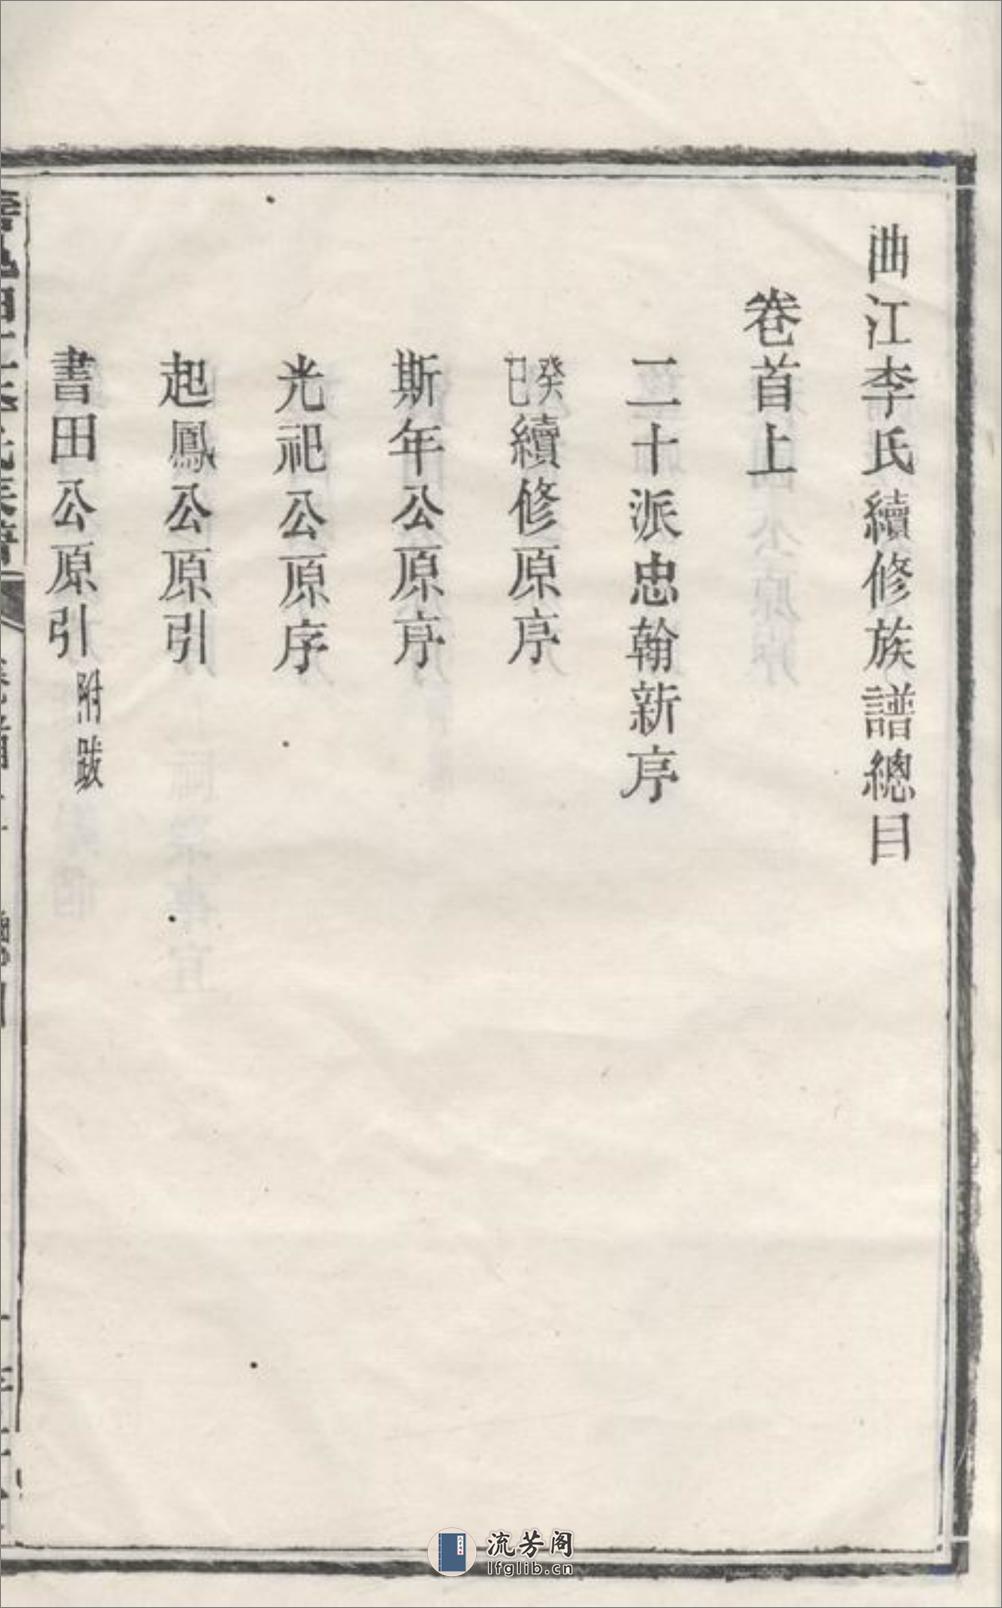 曲江李氏續修族譜總目
卷首上
二十派忠翰新序
癸巳續修原序
斯年公原序
光祀公原序
起鳳公原引
書田公原引附跋
流芳阁
lfglib.cn